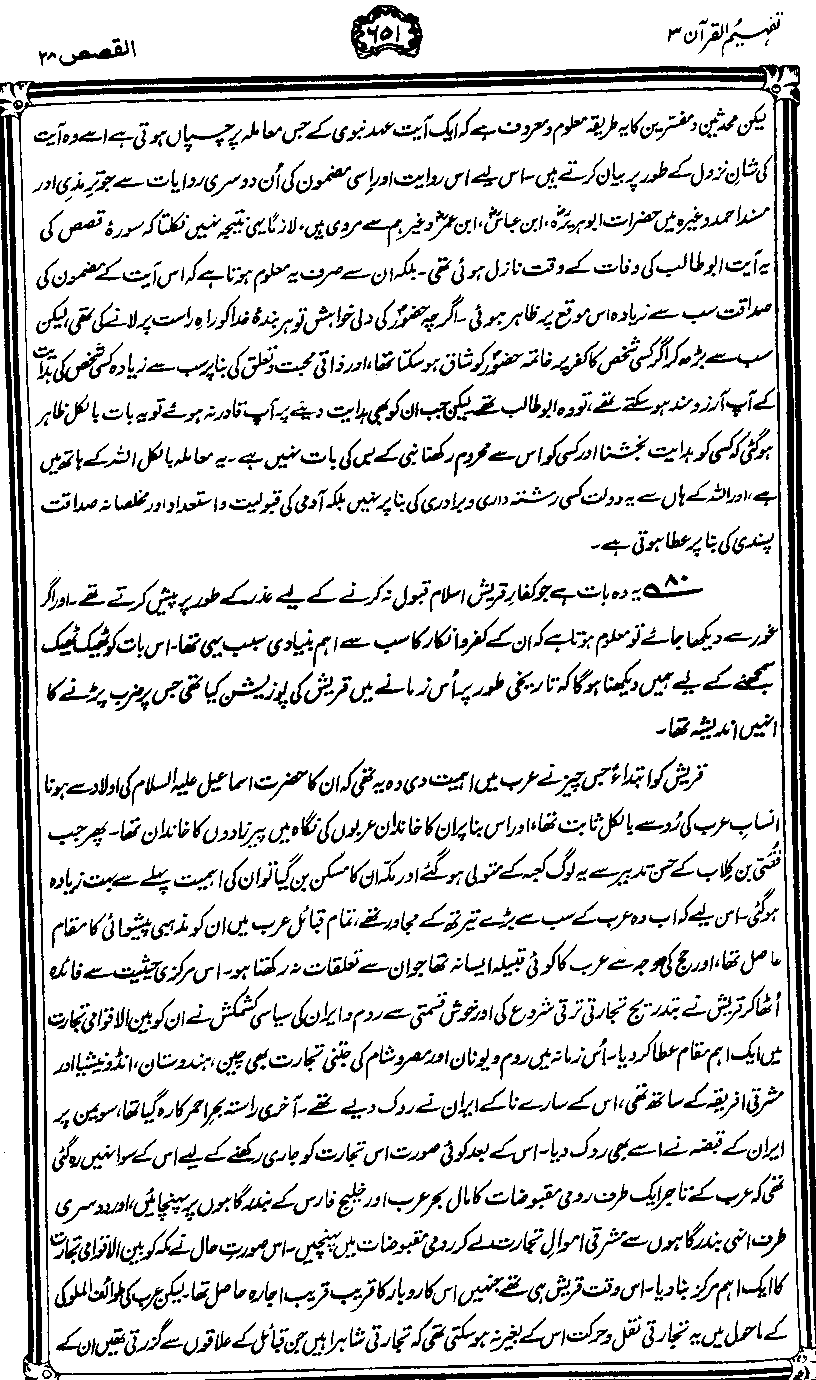 تفہیم القرآن ۳
۶۵۱
القصص ۲۸
لیکن محدثین و مفسّرین کا یہ طریقہ معلوم و معروف ہے کہ ایک آیت عہد نبوی کے جس معاملہ پر چسپاں ہوتی ہے اسے وہ آیت
کی شانِ نزول کے طور پر بیان کرتے ہیں۔ اس لیے اس روایت اور اِسی مضمون کی اُن دوسری روایات سے جو ترمذی اور
مسند احمد وغیرہ میں حضرات ابو ہریرہؓ، ابن عباسؓ، ابن عمرؓ وغیرہم سے مروی ہیں، لازماً یہی نتیجہ نہیں نکلتا کہ سورۂ قصص کی
یہ آیت ابو طالب کی وفات کے وقت نازل ہوئی تھی۔ بلکہ ان سے صرف یہ معلوم ہوتا ہے کہ اس آیت کے مضمون کی
صداقت سب سے زیادہ اس موقع پر ظاہر ہوئی۔ اگرچہ حضورؐ کی دلی خواہش تو ہر بندۂ خدا کو راہِ راست پر لانے کی تھی، لیکن
سب سے بڑھ کر اگر کسی شخص کا کفر پر خاتمہ حضورؐ کو شاق ہو سکتا تھا، اور ذاتی محبت و تعلق کی بنا پر سب سے زیادہ کسی شخص کی ہدایت
کے آپ آرزو مند ہو سکتے تھے، تو وہ ابو طالب تھے۔ لیکن جب ان کو بھی ہدایت دینے پر آپ قادر نہ ہوئے تو یہ بات بالکل ظاہر
ہو گئی کہ کسی کو ہدایت بخشنا اور کسی کو اس سے محروم رکھنا نبی کے بس کی بات نہیں ہے۔ یہ معاملہ بالکل اللہ کے ہاتھ میں
ہے، اور اللہ کے ہاں سے یہ دولت کسی رشتہ داری و برادری کی بنا پر نہیں بلکہ آدمی کی قبولیت و استعداد اور مخلصانہ صداقت
پسندی کی بنا پر عطا ہوتی ہے۔
۸۰؎ یہ وہ بات ہے جو کفارِ قریش اسلام قبول نہ کرنے کے لیے عذر کے طور پر پیش کرتے تھے۔ اور اگر
غور سے دیکھا جائے تو معلوم ہوتا ہے کہ ان کے کفر و انکار کا سب سے اہم بنیادی سبب یہی تھا۔ اس بات کو ٹھیک ٹھیک
سمجھنے کے لیے ہمیں دیکھنا ہوگا کہ تاریخی طور پر اُس زمانے میں قریش کی پوزیشن کیا تھی جس پر ضرب پڑنے کا
انہیں اندیشہ تھا۔
قریش کو ابتداءً جس چیز نے عرب میں اہمیت دی وہ یہ تھی کہ ان کا حضرت اسماعیل علیہ السلام کی اولاد سے ہونا
انسابِ عرب کی رُو سے بالکل ثابت تھا، اور اس بنا پر ان کا خاندان عربوں کی نگاہ میں پیر زادوں کا خاندان تھا۔ پھر جب
قُصَیّ بن کِلاب کے حسنِ تدبیر سے یہ لوگ کعبہ کے متولی ہو گئے اور مکہ ان کا مسکن بن گیا تو ان کی اہمیت پہلے سے بہت زیادہ
ہو گئی۔ اس لیے کہ اب وہ عرب کے سب سے بڑے تیرتھ کے مجاور تھے، تمام قبائل عرب میں ان کو مذہبی پیشوائی کا مقام
حاصل تھا، اور حج کی وجہ سے عرب کا کوئی قبیلہ ایسا نہ تھا جو ان سے تعلقات نہ رکھتا ہو۔ اس مرکزی حیثیت سے فائدہ
اُٹھا کر قریش نے بتدریج تجارتی ترقی شروع کی اور خوش قسمتی سے روم و ایران کی سیاسی کشمکش نے ان کو بین الاقوامی تجارت
میں ایک اہم مقام عطا کر دیا۔ اُس زمانہ میں روم و یونان اور مصر و شام کی جتنی تجارت بھی چین، ہندوستان، انڈونیشیا اور
مشرقی افریقہ کے ساتھ تھی، اس کے سارے ناکے ایران نے روک دیے تھے۔ آخری راستہ بحرِ احمر کا رہ گیا تھا، سو یمن پر
ایران کے قبضہ نے اسے بھی روک دیا۔ اس کے بعد کوئی صورت اس تجارت کو جاری رکھنے کے لیے اس کے سوا نہیں رہ گئی
تھی کہ عرب کے تاجر ایک طرف رومی مقبوضات کا مال بحرِ عرب اور خلیجِ فارس کے بندرگاہوں پر پہنچائیں، اور دوسری
طرف انہی بندرگاہوں سے مشرقی اموالِ تجارت لے کر رومی مقبوضات میں پہنچیں۔ اس صورتِ حال نے مکہ کو بین الاقوامی تجارت
کا ایک اہم مرکز بنا دیا۔ اس وقت قریش ہی تھے جنہیں اس کاروبار کا قریب قریب اجارہ حاصل تھا۔ لیکن عرب کی طوائف الملوکی
کے ماحول میں یہ تجارتی نقل و حرکت اس کے بغیر نہ ہو سکتی تھی کہ تجارتی شاہراہیں جن قبائل کے علاقوں سے گزرتی تھیں ان کے